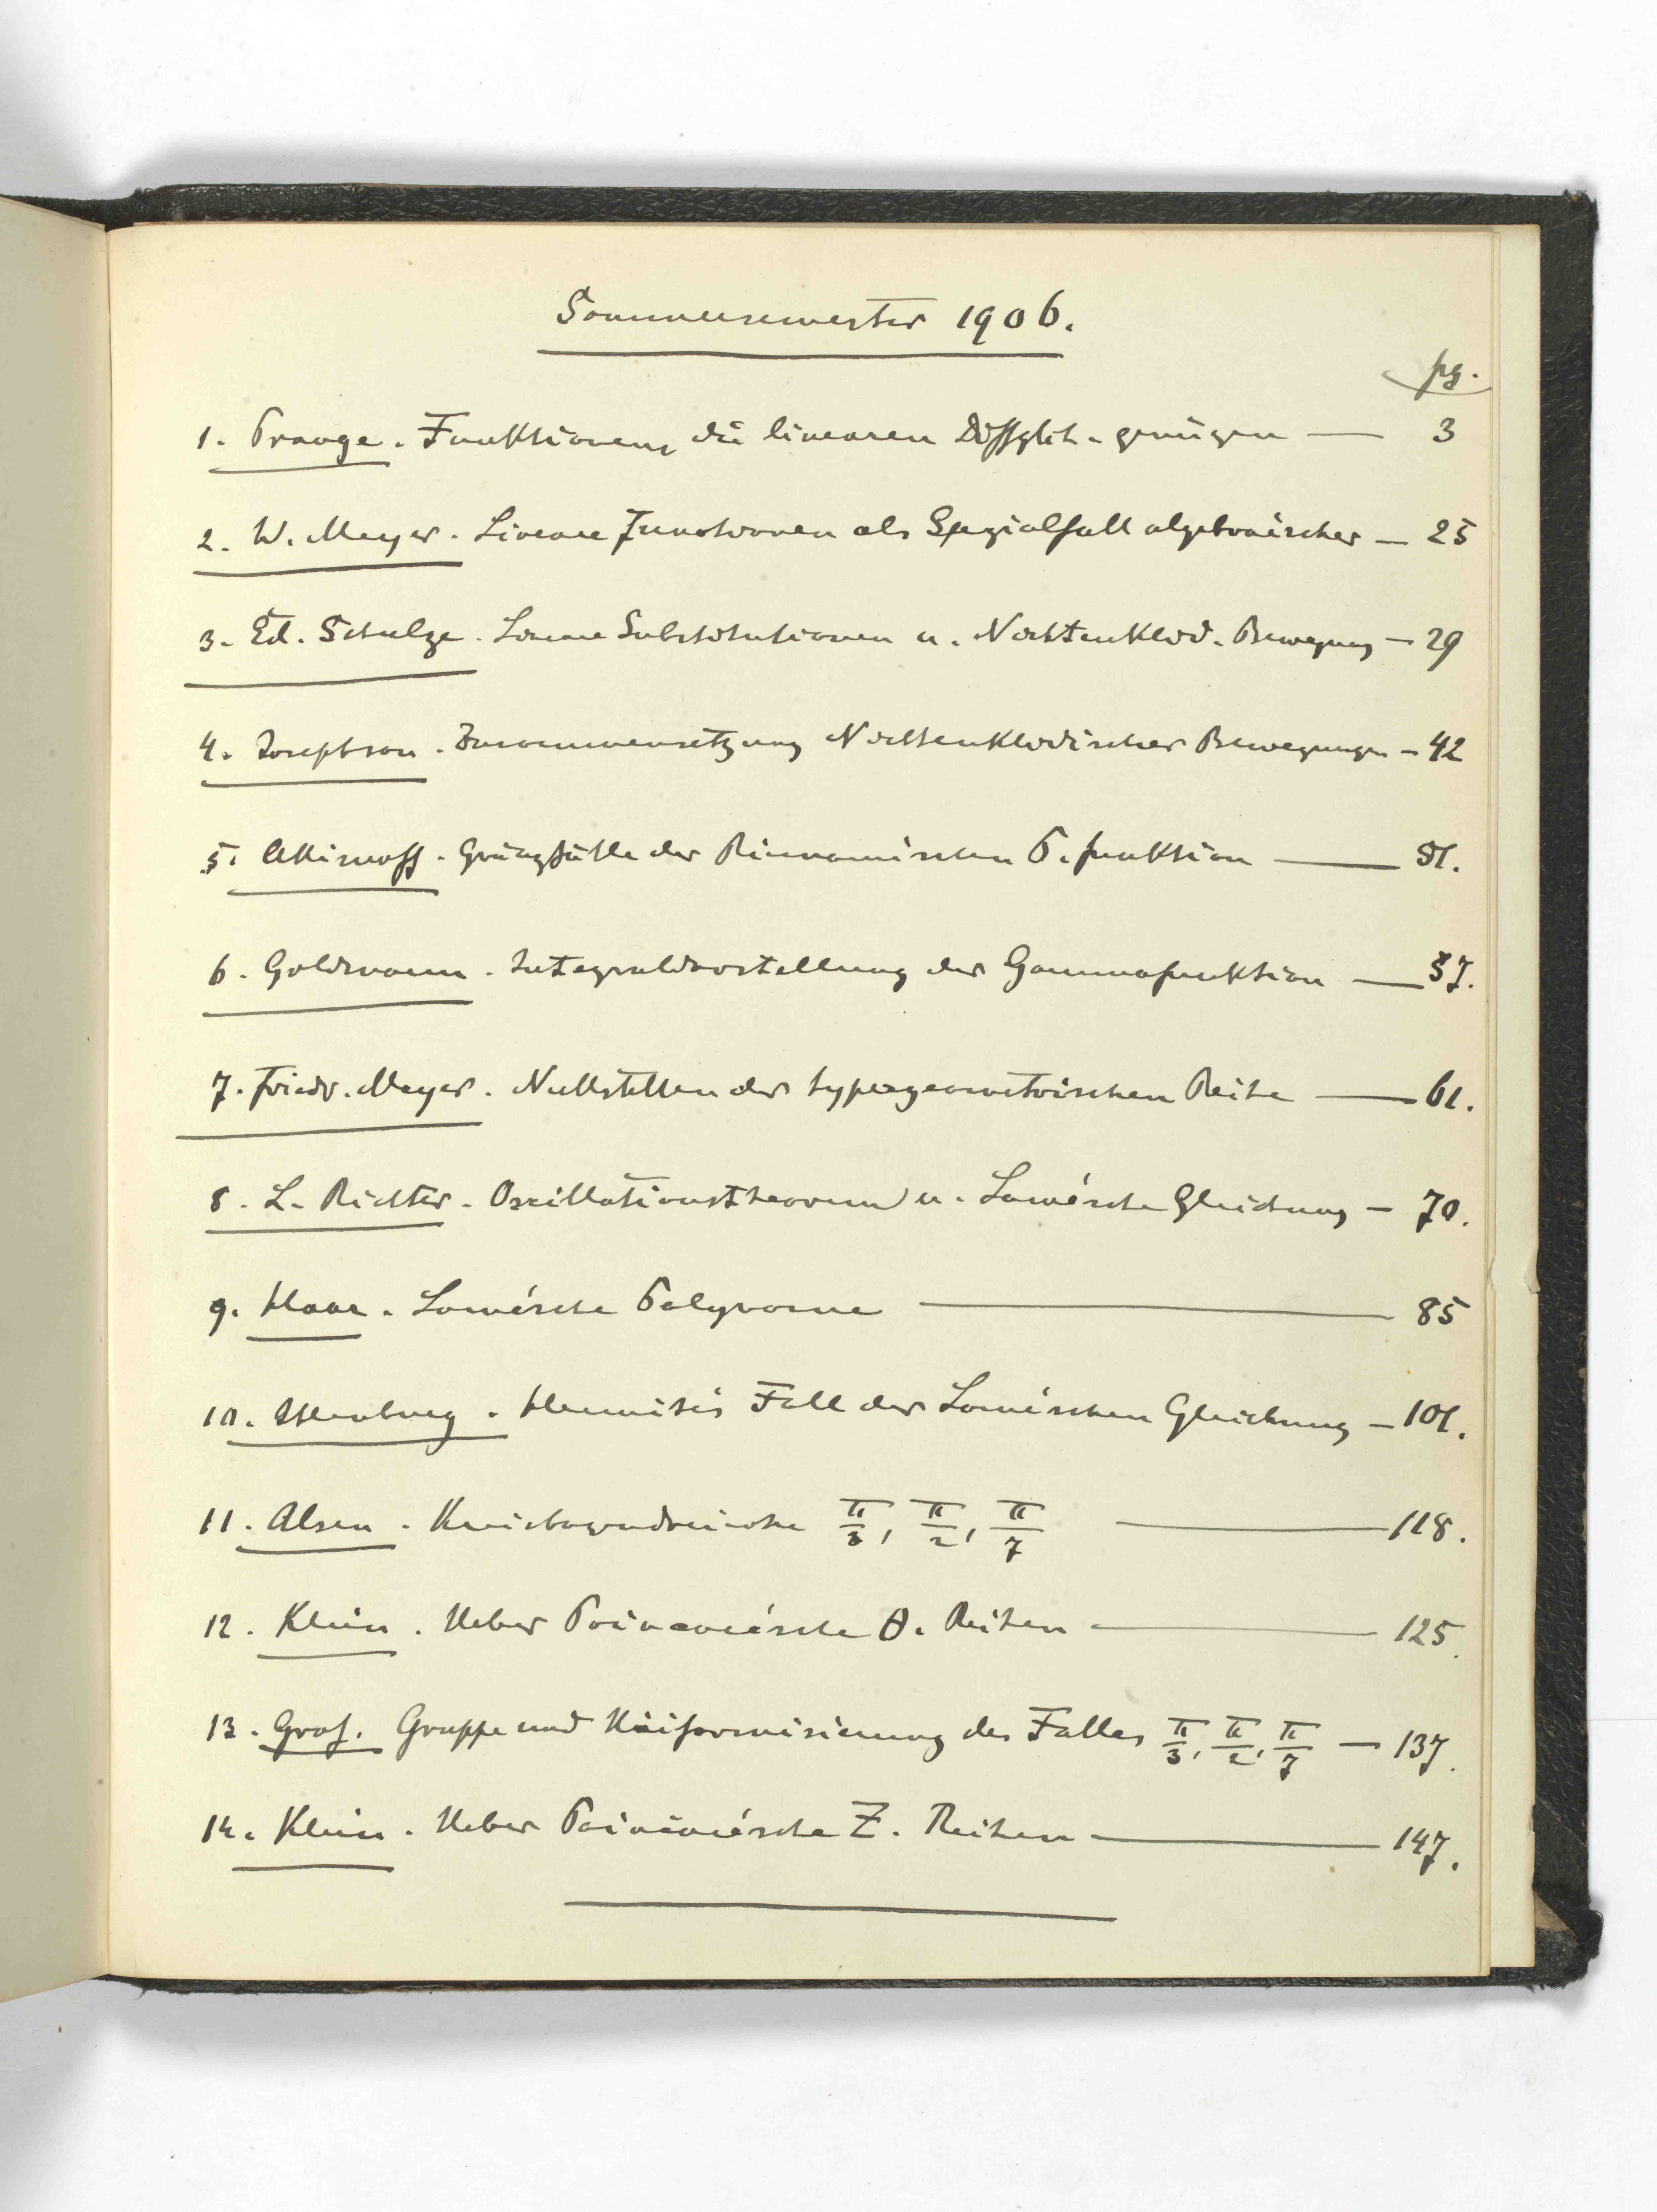 Sommersemester 1906.
pg.
1. Prange. Funktionen, die linearen Diffglch. genügen — 3
2. W. Meyer. Lineare Functionen als Spezialfall algebraischer — 25
3. Ed. Schulze. Lineare Substitutionen u. Nichteuklid. Bewegung — 29
4. Josephson. Zusammensetzung Nichteuklidischer Bewegungen — 42
5. Akimoff. Grenzfälle der Riemannschen P. funktion — 51.
6. Goldmann. Integraldarstellung der Gammafunktion — 57.
7. Friedr. Meyer. Nullstellen der hypergeometrischen Reihe — 61.
8. L. Richter. Oszillationstheorem u. Lamésche Gleichung — 70.
9. Haar. Lamésche Polynome — 85
10. Hermites Fall der Laméschen Gleichung — 101.
11. Alsen. Kreisbogendreiecke π/3, π/2, π/7 — 118.
12. Klein. Ueber Poincarésche θ. Reihen — 125.
13. Graf. Gruppe und Uniformisierung des Falles π/3, π/2, π/7 — 137.
14. Klein. Ueber Poincarésche Z. Reihen — 147.